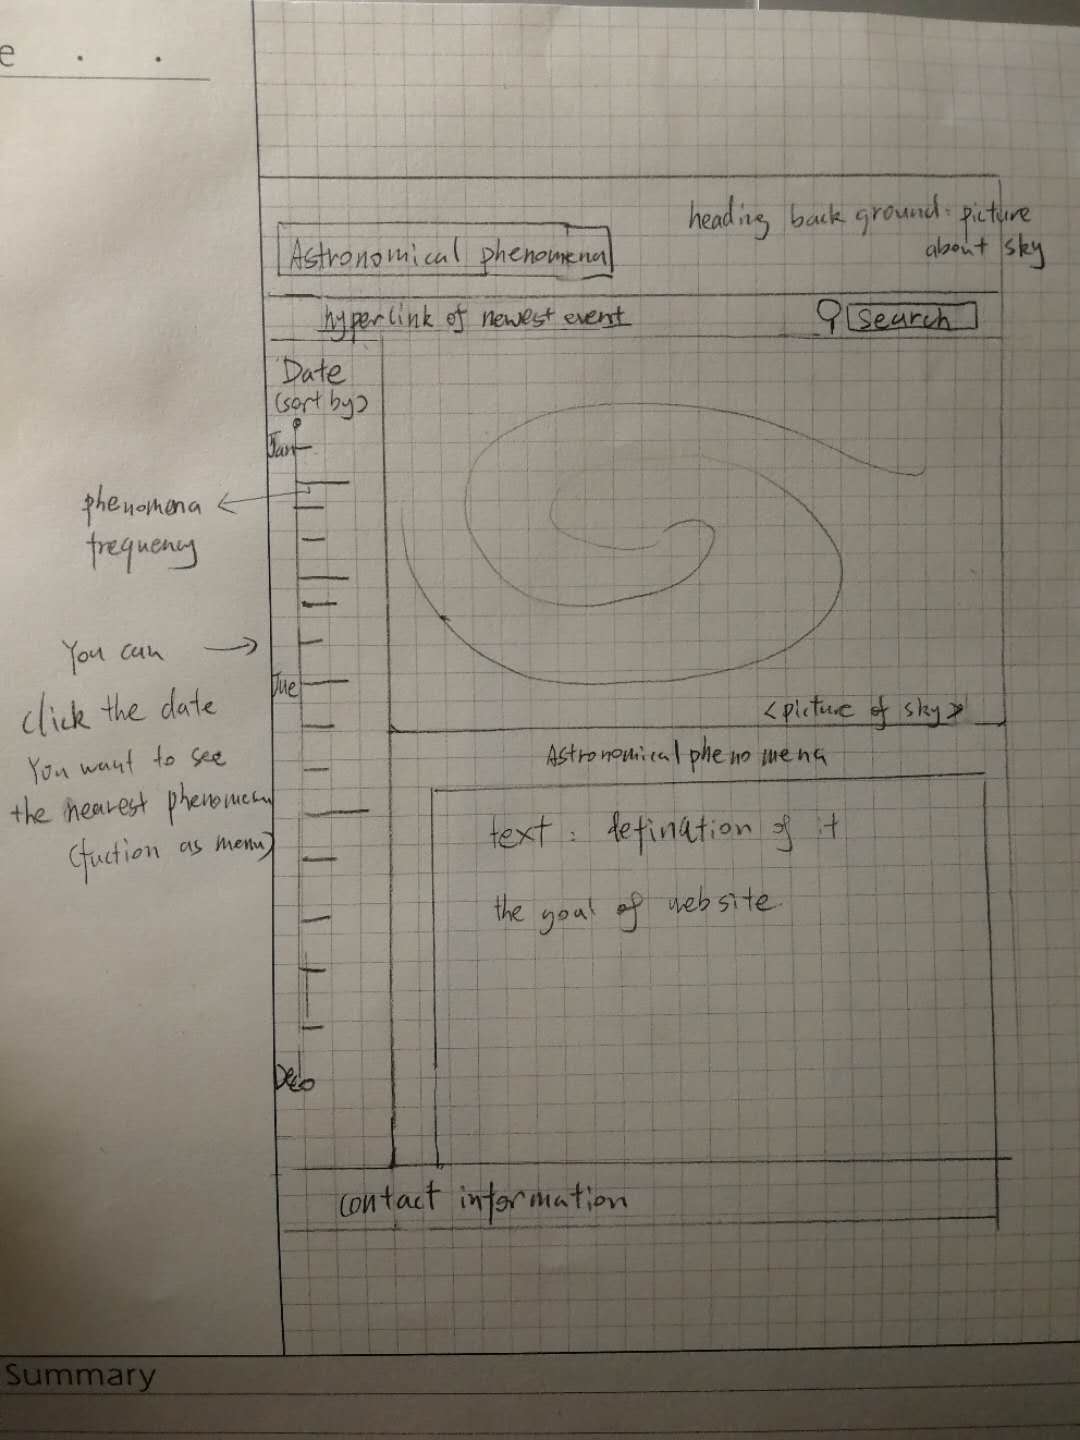 e
heading back ground: picture
about sky
Astronomical phenomena
hyperlink of newest event
search
Date
(sort by)
Jan
phenomena
frequency
You can
click the date
You want to see
the nearest phenomena
(fuction as menu)
Jue
<picture of sky>
Astronomical phenomena
text: defination of it
the goal of website.
Dec
contact information
Summary